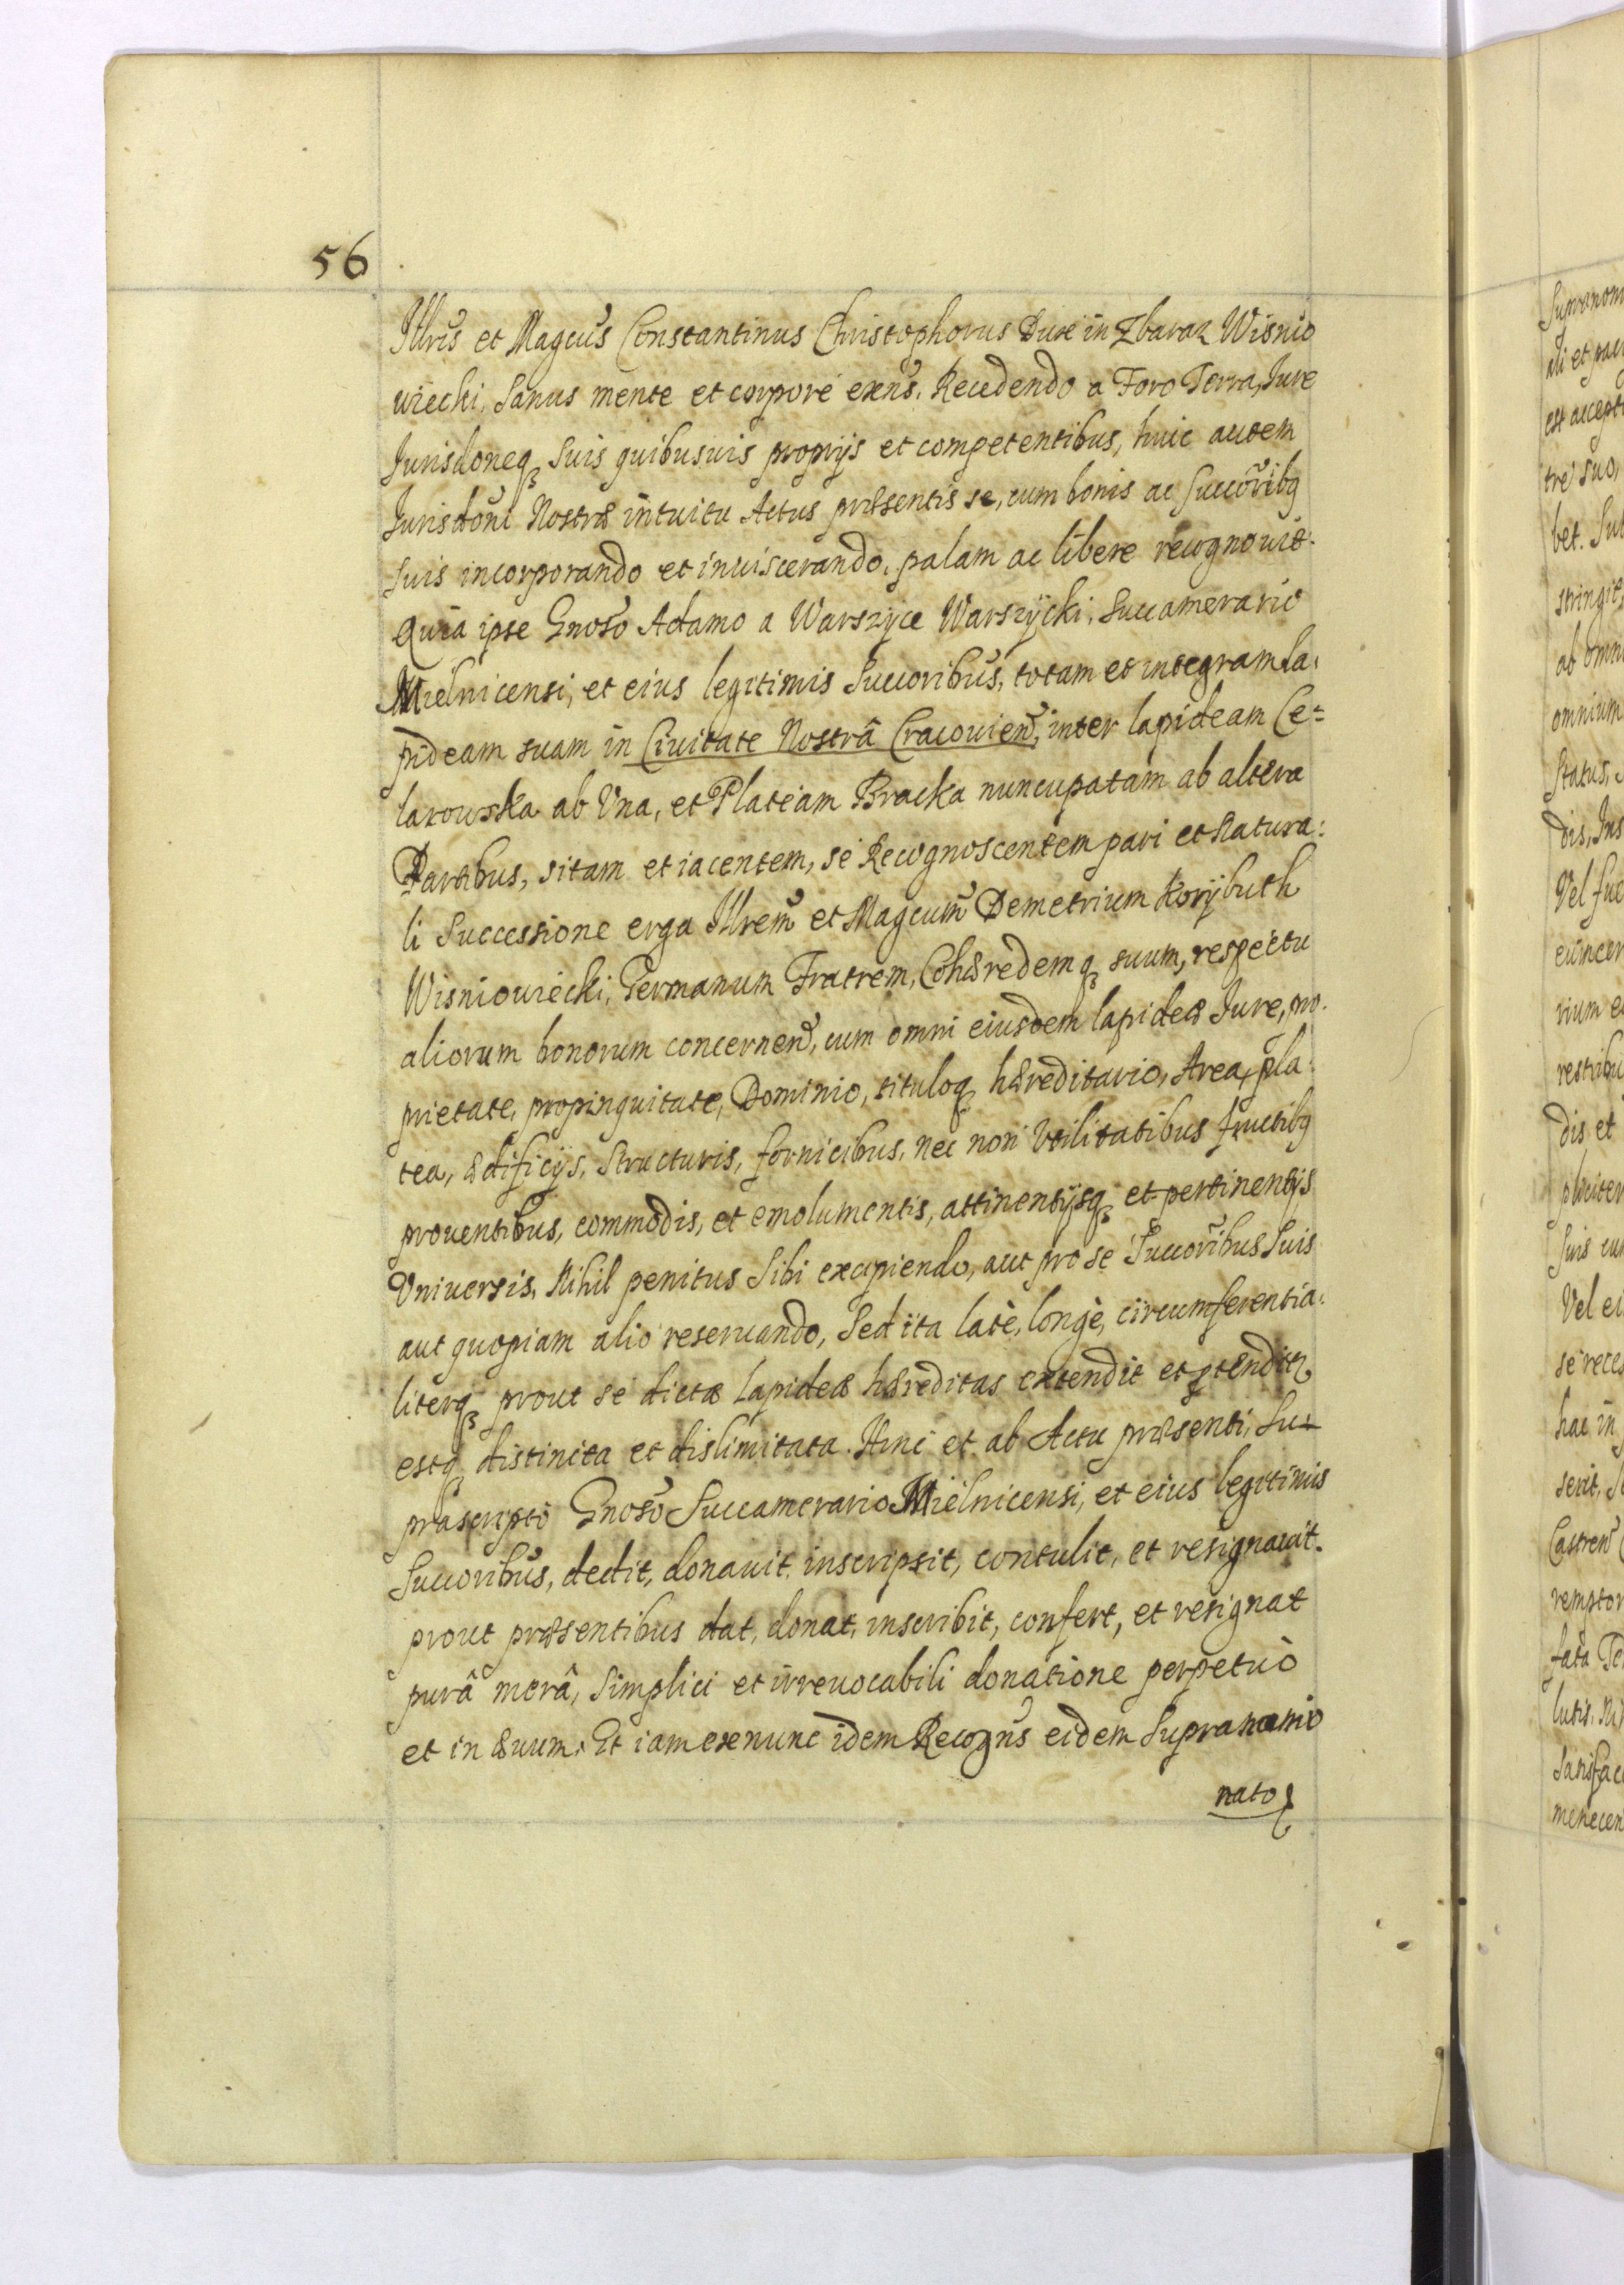 56
Illris et Magcus Constantinus Christophorus Dux in Zbaraz Wisnio
wiecki, Sanus mente et corpore exns, Recedendo a Foro Terra, Iure
Jurisdoneq Suis quibusuis proprijs et competentibus, huic autem
Jurisdoni Nostræ intuitu Actus præsentis se, cum bonis ac Succoribq
suis incorporando et inuiscerando, palam ac libere recognouit.
Quia ipse Gnoso Adamo a Warszyce Warszÿcki, Succamerario
Mielnicensi, et eius legitimis Succoribus, totam et integram La,
pideam suam in Ciuitate Nostrâ Cracouien, inter lapideam Ce=
larowska ab Vna, et Plateam Bracka nuncupatam ab altera
Partibus, sitam et iacentem, se Recognoscentem pari et Natura:
li Successione erga Illrem et Magcum Demetrium Korÿbuth
Wisniowiecki, Germanum Fratrem, Cohæredemq suum, respectu
aliorum bonorum concernen, cum omni eiusdem lapideæ Iure, pro.
prietate, propinquitate, Dominio, tituloq hæreditario, Area, pla:
tea, ædificijs, Structuris, fornicibus, nec non Vtilitatibus fructibq
prouentibus, commodis, et emolumentis, attinentijsq et pertinentijs
Vniuersis, Nihil penitus Sibi excipiendo, aut pro se Succoribus Suis
aut quopiam alio reseruando, Sed ita latè, longè, circumferentia:
literq prout se dictæ Lapideæ hæreditas extendit et ptenditr
estq distincta et dislimitata. Hinc et ab Actu præsenti, Su=
prascripto Gnoso Succamerario Mielnicensi, et eius legitimis
Succoribus, dedit, donauit, inscripsit, contulit, et resignauit.
prout præsentibus dat, donat, inscribit, confert, et resignat
purâ merâ, Simplici et irreuocabili donatione perpetuò
et in æuum. Et iam exnunc idem Recogns eidem Supranomi
nato
Supranom
est accept
tre suo,
bet. Su
stringit,
ab omni
omnium
Status,
dis, Ins
Vel fue
rium e
dis et
pliciter
Suis cu
Vel ei
se rece
hac in
serit, S
Castren
remptor
fata Te
lutis, Ni
Satisfac